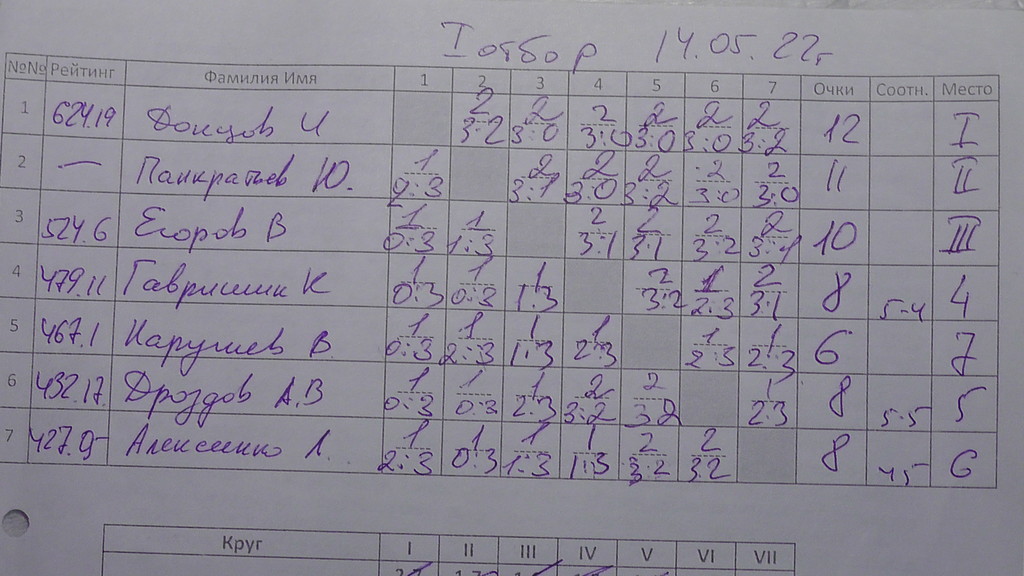 I отбор 14.05.22г
№№ Рейтинг Фамилия Имя 1 2 3 4 5 6 7 Очки Соотн. Место
1 624.19 Донцов И 2 3:2 2 3:0 2 3:0 2 3:0 2 3:0 2 3:2 12 I
2 — Панкратьев Ю. 1 2:3 2 3:1 2 3:0 2 3:2 2 3:0 2 3:0 11 II
3 524.6 Егоров В 1 0:3 1 1:3 2 3:1 2 3:1 2 3:2 2 3:1 10 III
4 479.11 Гавришин К 1 0:3 1 0:3 1 1:3 2 3:2 1 2:3 2 3:1 8 5-4 4
5 467.1 Карушев В 1 0:3 1 2:3 1 1:3 1 2:3 1 2:3 1 2:3 6 7
6 432.17 Дроздов А.В 1 0:3 1 0:3 1 2:3 2 3:2 2 3:2 1 2:3 8 5-5 5
7 Алексеенко Л. 1 2:3 1 0:3 1 1:3 1 1:3 2 3:2 2 3:2 8 4 5 6
Круг I II III IV V VI VII